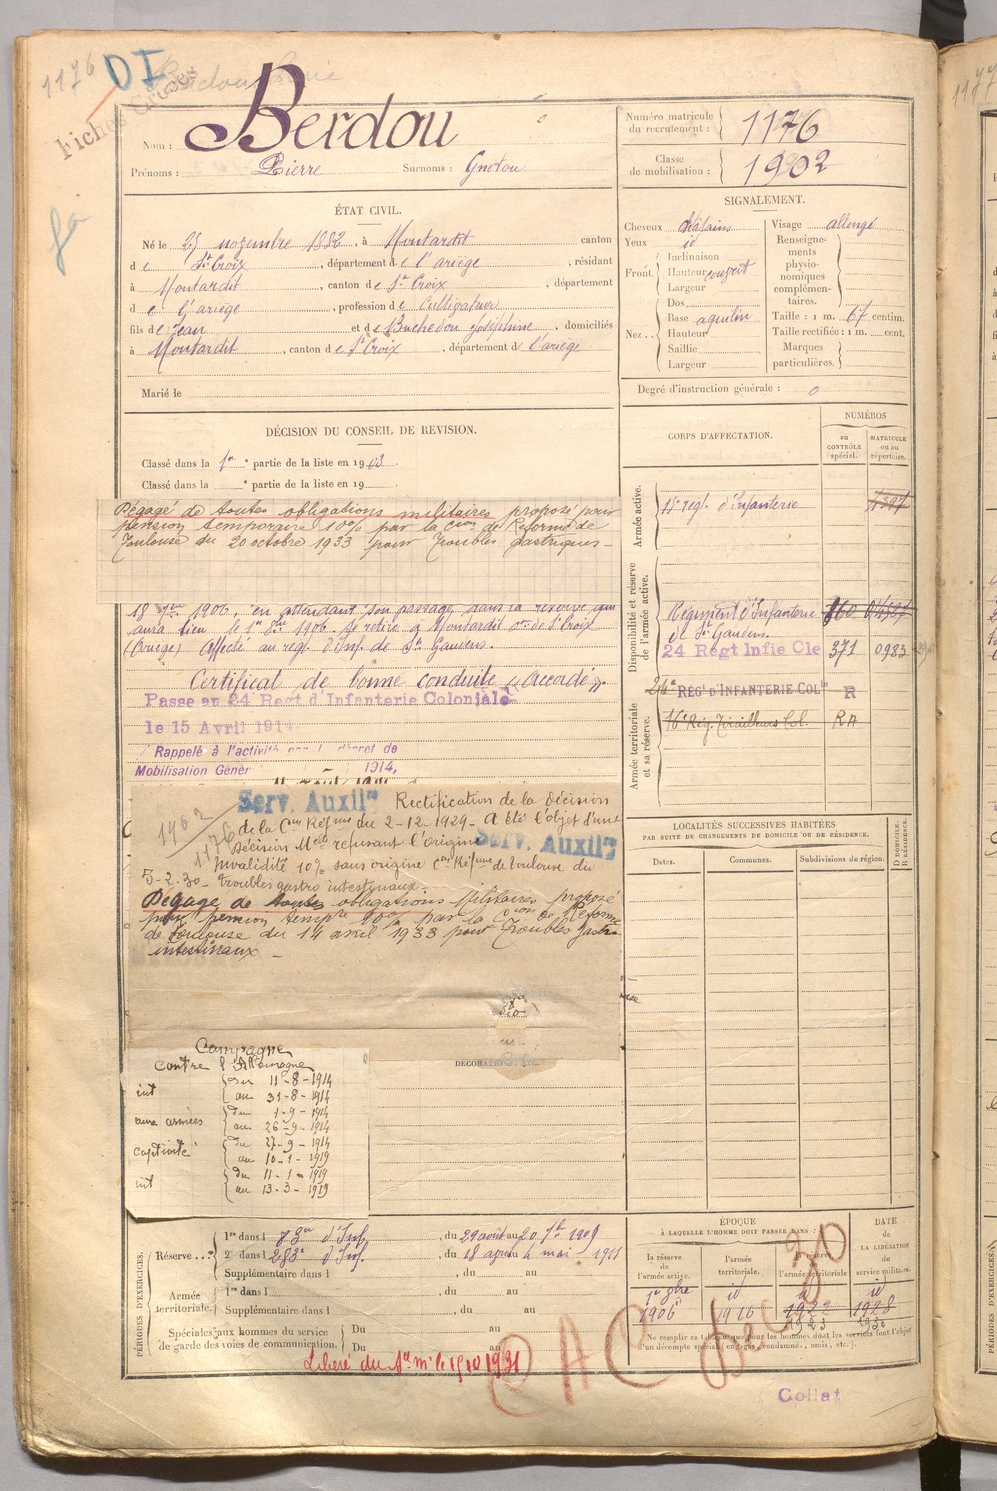 1176 DI
Fiches Croisées
Nom : Berdou
Prénoms : Pierre Surnoms :
Numéro matricule du recrutement : 1176
Classe de mobilisation : 1902
ÉTAT CIVIL.
Né le 25 novembre 1882, à Montardit canton
de St Croix, département de l'ariège, résidant
à Montardit, canton de Ste Croix, département
de l'ariège, profession de Cultivateur
fils de Jean et de Buchedou Joséphine, domiciliés
à Montardit, canton de Ste Croix, département de l'ariège
Marié le
SIGNALEMENT.
Cheveux châtains
Yeux id
Front. Inclinaison
Hauteur couvert
Largeur
Nez.. Dos
Base aquilin
Hauteur
Saillie
Largeur
Visage allongé
Renseignements physionomiques complémentaires.
Taille : 1 m. 67 centim.
Taille rectifiée : 1 m. cent.
Marques particulières.
Degré d'instruction générale : 0
DÉCISION DU CONSEIL DE REVISION.
Classé dans la 1re partie de la liste en 1903.
Classé dans la e partie de la liste en 19
Dégagé de toutes obligations militaires proposé pour
pension temporaire 10% par la Cion de Réforme de
Toulouse du 20 octobre 1933 pour Troubles gastriques –
18 7bre 1906, en attendant son passage dans la réserve qui
aura lieu le 1er 8bre 1906. Se retire à Montardit con de St Croix
(Ariège) Affecté au rég. d'Inf. de St Gaudens.
Certificat de bonne conduite "Accordé".
Passe au 24 Regt d'Infanterie Coloniale
le 15 Avril 1914
Rappelé à l'activité par le décret de
Mobilisation Génér 1914,
1902
1176
Serv. Auxilre Rectification de la Décision
de la Con Réfme du 2-12-1929 - A été l'objet d'une
Décision Mlle refusant l'origine Serv. Auxilre
Invalidité 10% sans origine Con Réfme de Toulouse du
5-2-30 - troubles gastro intestinaux.
Dégagé de toutes obligations Militaires proposé
pour pension tempre 10% par la Cion de Réforme
de Toulouse du 14 avril 1933 pour Troubles gastro-
intestinaux –
CORPS D'AFFECTATION.
NUMÉROS
au CONTRÔLE spécial.
MATRICULE ou au répertoire.
Armée active.
d'Infanterie
Disponibilité et réserve de l'armée active.
Régiment d'Infanterie
de St Gaudens.
24 Regt Infie Cle 371 0983
Armée territoriale et sa réserve.
24e RÉGt D'INFANTERIE COLle R
16e Rég. Tirailleurs Col. RA
LOCALITÉS SUCCESSIVES HABITÉES
PAR SUITE DE CHANGEMENTS DE DOMICILE OU DE RÉSIDENCE.
Dates. Communes. Subdivisions de région. D DOMICILE. R RÉSIDENCE.
Campagne
contre l'Allemagne
int du 11-8-1914
au 31-8-1914
aux armées du 1-9-1914
au 26-9-1914
captivité du 27-9-1914
au 10-1-1919
int du 11-1-1919
au 13-3-1919
PÉRIODES D'EXERCICES.
Réserve... 1re dans l 83e d'Inf., du 29 août au 20 7bre 1909
2e dans l 283e d'Inf., du 18 avril au 4 mai 1911
Supplémentaire dans l , du au
Armée territoriale. 1re dans l , du au
Supplémentaire dans l , du au
Spéciales aux hommes du service de garde des voies de communication. Du au
Du au
Libéré du Sce mre le 15 10 1931
ÉPOQUE
À LAQUELLE L'HOMME DOIT PASSER DANS :
la réserve de l'armée active. l'armée territoriale. la réserve de l'armée territoriale
DATE DE LA LIBÉRATION du service militaire.
1er 8bre id id id
1906 1916 1922 1928
1923 1930
Ne remplir ce tableau que pour les hommes dont les services font l'objet d'un décompte spécial (engagés, condamnés, omis, etc.).
CAC Dec 30
Collat